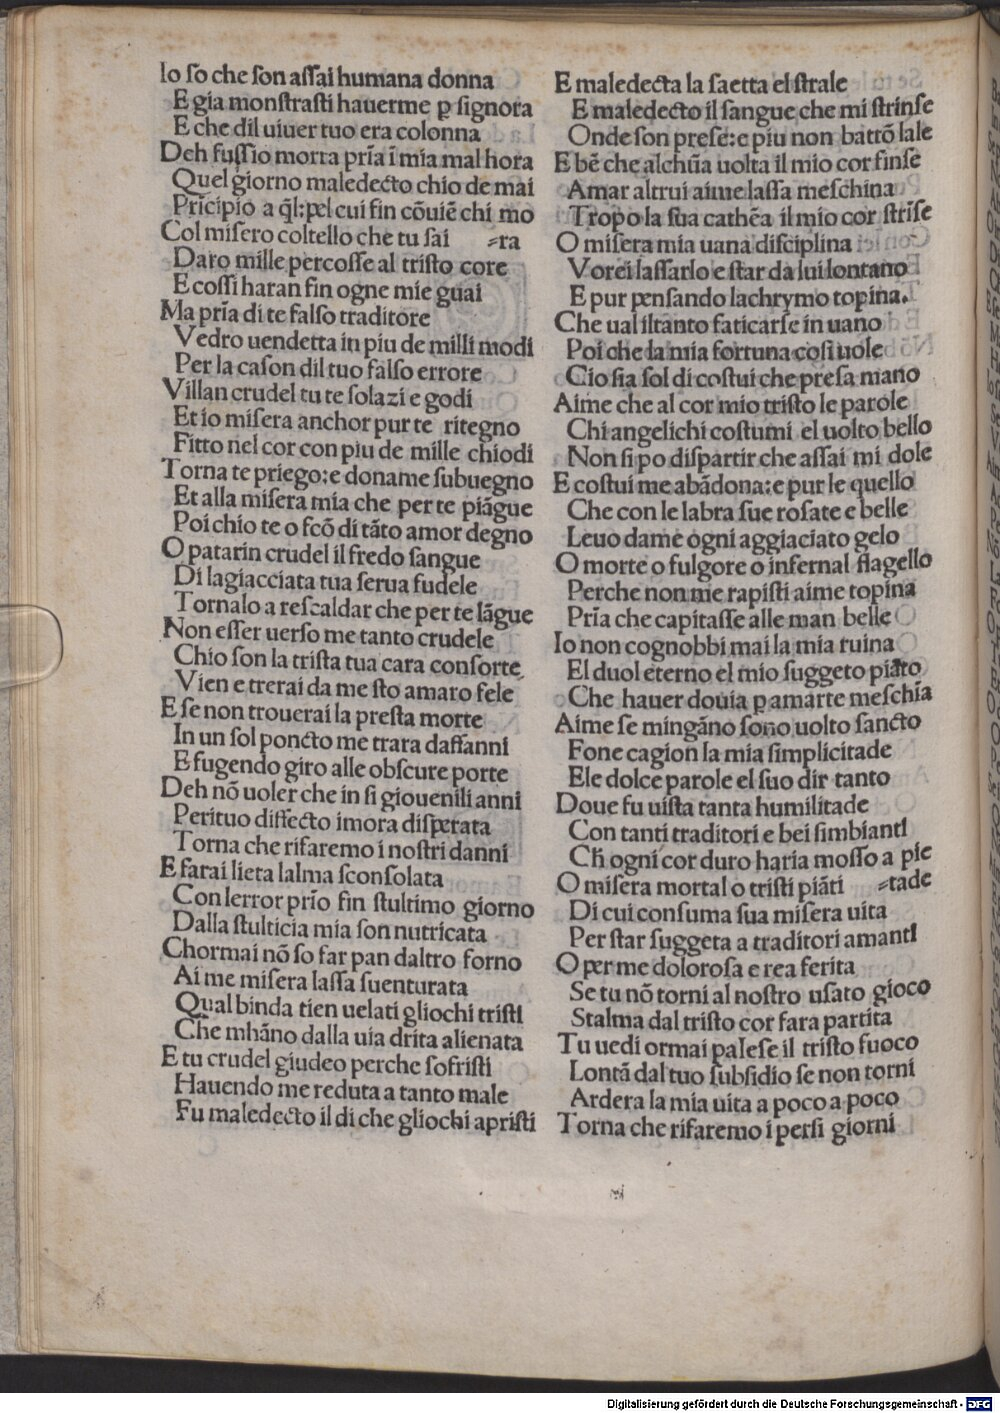 Io ſo che ſon aſſai humana donna
E gia monſtraſti hauerme ꝑ ſignora
E che dil uiuer tuo era colonna
Deh fuſſio morta pria ĩ mia mal hora
Quel giorno maledecto chio de mai
Prĩcipio a q̃l:ꝑel cui fin cõuiẽ chi mo
Col miſero coltello che tu ſai =ra
Daro mille percoſſe al triſto core
E coſſi haran fin ogne mie guai
Ma pr̃ia di te falſo traditore
Vedro uendetta in piu de milli modi
Per la caſon dil tuo falſo errore
Villan crudel tu te ſolazi e godi
Et io miſera anchor pur te ritegno
Fitto nel cor con piu de mille chiodi
Torna te priego:e doname ſubuegno
Et alla miſera mia che per te piãgue
Poi chio te o fcõ di tãto amor degno
O patarin crudel il fredo ſangue
Di lagiacciata tua ſerua fudele
Tornalo a reſcaldar che per te lãgue
Non eſſer uerſo me tanto crudele
Chio ſon la triſta tua cara conſorte
Vien e trerai da me ſto amaro fele
E ſe non trouerai la preſta morte
In un ſol poncto me trara daffanni
E fugendo giro alle obſcure porte
Deh nõ uoler che in ſi giouenili anni
Perituo diffecto imora diſperata
Torna che rifaremo i noſtri danni
E farai lieta lalma ſconſolata
Con lerror pr̃io fin ſtultimo giorno
Dalla ſtulticia mia ſon nutricata
Chormai nõ ſo far pan daltro forno
Ai me miſera laſſa ſuenturata
Qual binda tien uelati gliochi triſti
Che mhãno dalla uia drita alienata
E tu crudel giudeo perche ſofriſti
Hauendo me reduta a tanto male
Fu maledecto il di che gliochi apriſti
E maledecta la ſaetta el ſtrale
E maledecto il ſangue che mi ſtrinſe
Onde ſon preſe:e piu non battrõ lale
E bẽ che alchũa uolta il mio cor finſe
Amar altrui aime laſſa meſchina
Tropo la ſua cathẽa il mio cor ſtrĩſe
O miſera mia uana diſciplina
Vorei laſſarlo e ſtar da lui lontano
E pur penſando lachrymo topina.
Che ual iltanto faticarſe in uano
Poi che la mia fortuna coſi uole
Cio ſia ſol di coſtui che preſa mano
Aime che al cor mio triſto le parole
Chi angelichi coſtumi el uolto bello
Non ſi po diſpartir che aſſai mi dole
E coſtui me abãdona:e pur le quello
Che con le labra ſue roſate e belle
Leuo dame ogni aggiaciato gelo
O morte o fulgore o infernal flagello
Perche non me rapiſti aime topina
Pr̃ia che capitaſſe alle man belle
Io non cognobbi mai la mia ruina
El duol eterno el mio ſuggeto piãto
Che hauer douia ꝑ amarte meſchĩa
Aime ſe mingãno ſono uolto ſancto
Fone cagion la mia ſimplicitade
Ele dolce parole el ſuo dir tanto
Doue fu uiſta tanta humilitade
Con tanti traditori e bei ſimbianti
Ch̃ ogni cor duro haria moſſo a pie
O miſera mortal o triſti piãti =tade
Di cui conſuma ſua miſera uita
Per ſtar ſuggeta a traditori amanti
O per me doloroſa e rea ferita
Se tu nõ torni al noſtro uſato gioco
Stalma dal triſto cor fara partita
Tu uedi ormai paleſe il triſto fuoco
Lontã dal tuo ſubſidio ſe non torni
Ardera la mia uita a poco a poco
Torna che rifaremo i perſi giorni
Digitalisierung gefördert durch die Deutsche Forschungsgemeinschaft - DFG